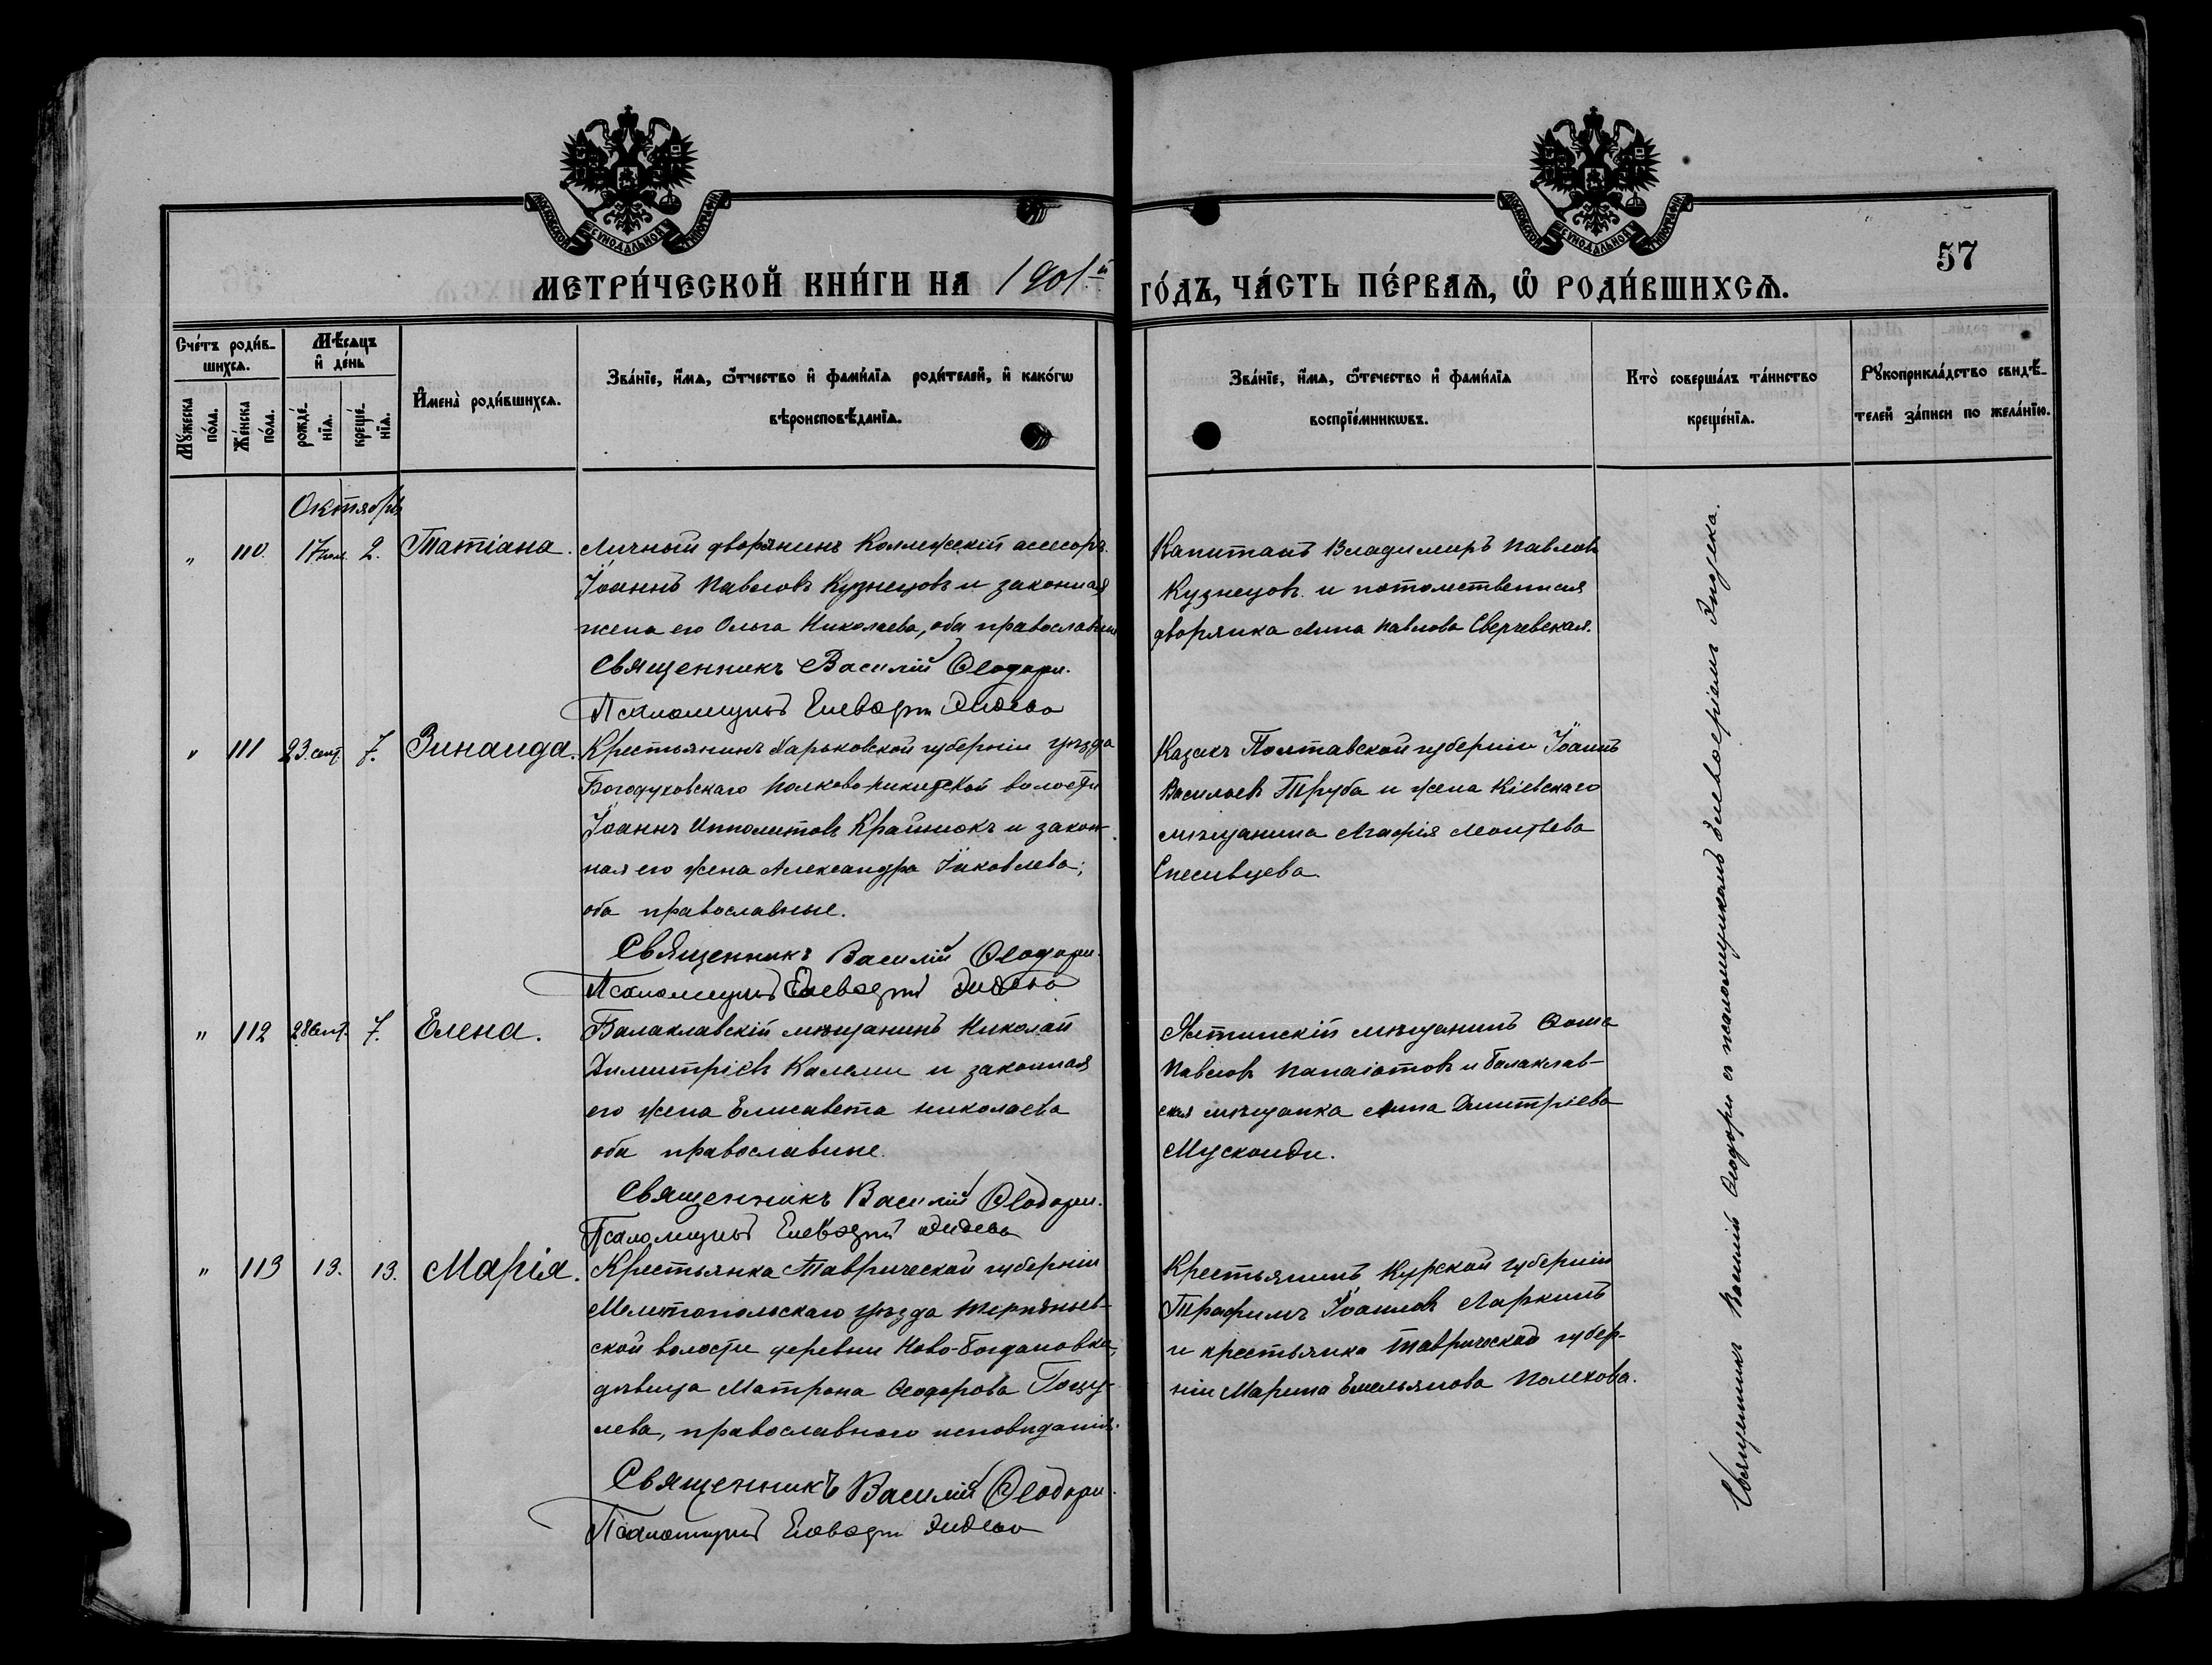 МОСКОВСКОЙ СѴНОДАЛЬНОЙ ТИПОГРАФІИ
МОСКОВСКОЙ СѴНОДАЛЬНОЙ ТИПОГРАФІИ
57
МЕТРИ́ЧЕСКОЙ КНИ́ГИ НА 1901й ГО́ДЪ, ЧА́СТЬ ПЕ́РВАѦ, Ѡ РОДИ́ВШИХСѦ.
Сче́тъ роди́вшихсѧ.
Мꙋ́жеска по́ла.
Же́нска по́ла.
Мѣ́сѧцъ и҆ де́нь
рожде́нїѧ.
креще́нїѧ.
И҆мена̀ роди́вшихсѧ.
Зва́нїе, и҆́мѧ, ѻ҆́тчество и҆ фами́лїѧ роди́телей, и҆ како́гѡ
вѣроисповѣ́данїѧ.
Зва́нїе, и҆́мѧ, ѻ҆те́чество и҆ фами́лїѧ
воспрїе́мникѡвъ.
Кто̀ соверша́лъ та́инство
креще́нїѧ.
Рꙋкоприкла́дство свидѣ́телей за́писи по жела́нїю.
Октябрь
" 110. 17 2. Татіана.
Личный дворянинъ Коллежскій асесоръ
Іоаннъ Павловъ Кузнецовъ и законная
жена его Ольга Николаева, оба православные
Священникъ Василій Ѳеодори.
Псаломщикъ Елевѳерій
Капитанъ Владимиръ Павловъ
Кузнецовъ и потомственная
дворянка Анна Павлова Сверчевская.
" 111 23 сент. 7. Зинаида.
Крестьянинъ Харьковской губерніи уѣзда
Богодуховскаго Полково-Никитской волости
Іоаннъ Ипполитовъ Крайнюкъ и закон-
ная его жена Александра Іаковлева;
оба православные.
Священникъ Василій Ѳеодори.
Псаломщикъ Елевѳерій
Казакъ Полтавской губерніи Іоаннъ
Васильевъ Труба и жена Кіевскаго
мѣщанина Агафія Леонтьева
Спесивцева.
" 112 28 Сент. 7. Елена.
Балаклавскій мѣщанинъ Николай
Димитріевъ Калели и законная
его жена Елисавета Николаева
оба православные.
Священникъ Василій Ѳеодори.
Псаломщикъ Елевѳерій
Ялтинскій мѣщанинъ Ѳома
Павловъ Панаіотовъ и балаклав-
ская мѣщанка Анна Дмитріева
Мусконди.
" 113 13. 13. Марія.
Крестьянка Таврической губерніи
Мелитопольскаго уѣзда Терпѣньев-
ской волости деревни Ново-Богдановка,
дѣвица Матрона Ѳеодорова
православнаго исповѣданія.
Священникъ Василій Ѳеодори.
Псаломщикъ Елевѳерій
Крестьянинъ Курской губерніи
Трофимъ Іоанновъ Ларкинъ
и крестьянка Таврической губер-
ніи Марина Емельянова Полехова.
Священникъ Василій Ѳеодори съ псаломщикомъ Елевѳеріемъ